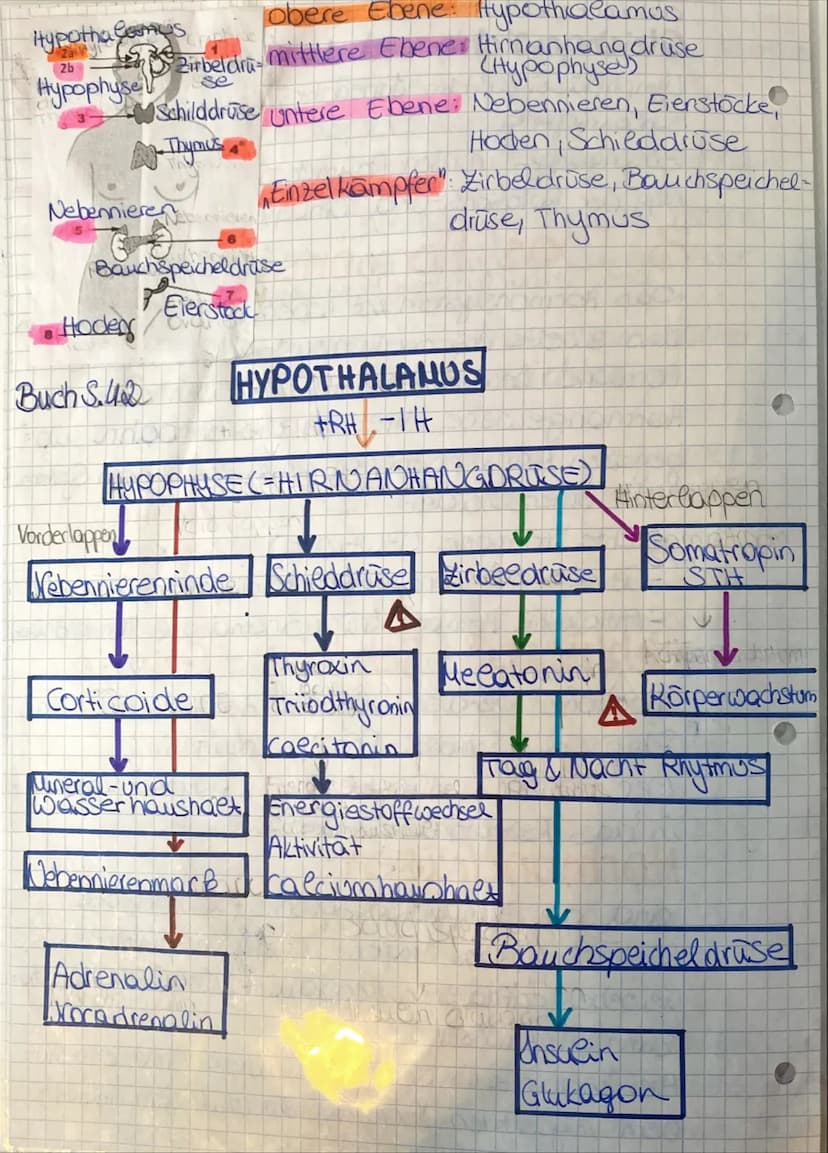 obere Ebene: Hypothalamus
mittlere Ebene: Hirnanhangdrüse
(Hypophyse)
untere Ebene: Nebennieren, Eierstöcke,
Hoden, Schilddrüse
„Einzelkämpfer": Zirbeldrüse, Bauchspeichel-
drüse, Thymus
Hypothalamus
2a
1
2b
Zirbeldrü-
se
Hypophyse
3
Schilddrüse
Thymus 4
Nebennieren
5
6
Bauchspeicheldrüse
7
Eierstock
8 Hoden
Buch S.42
HYPOTHALAMUS
+RH -IH
HYPOPHYSE (=HIRNANHANGDRÜSE)
Hinterlappen
Vorderlappen
Nebennierenrinde
Schilddrüse
Zirbeldrüse
Somatropin
STH
Corticoide
Thyroxin
Triiodthyronin
Calcitonin
Melatonin
Körperwachstum
Mineral-und
Wasserhaushalt
Tag & Nacht Rhytmus
Energiestoffwechsel
Aktivität
Calciumhaushalt
Nebennierenmark
Bauchspeicheldrüse
Adrenalin
Noradrenalin
Insulin
Glukagon